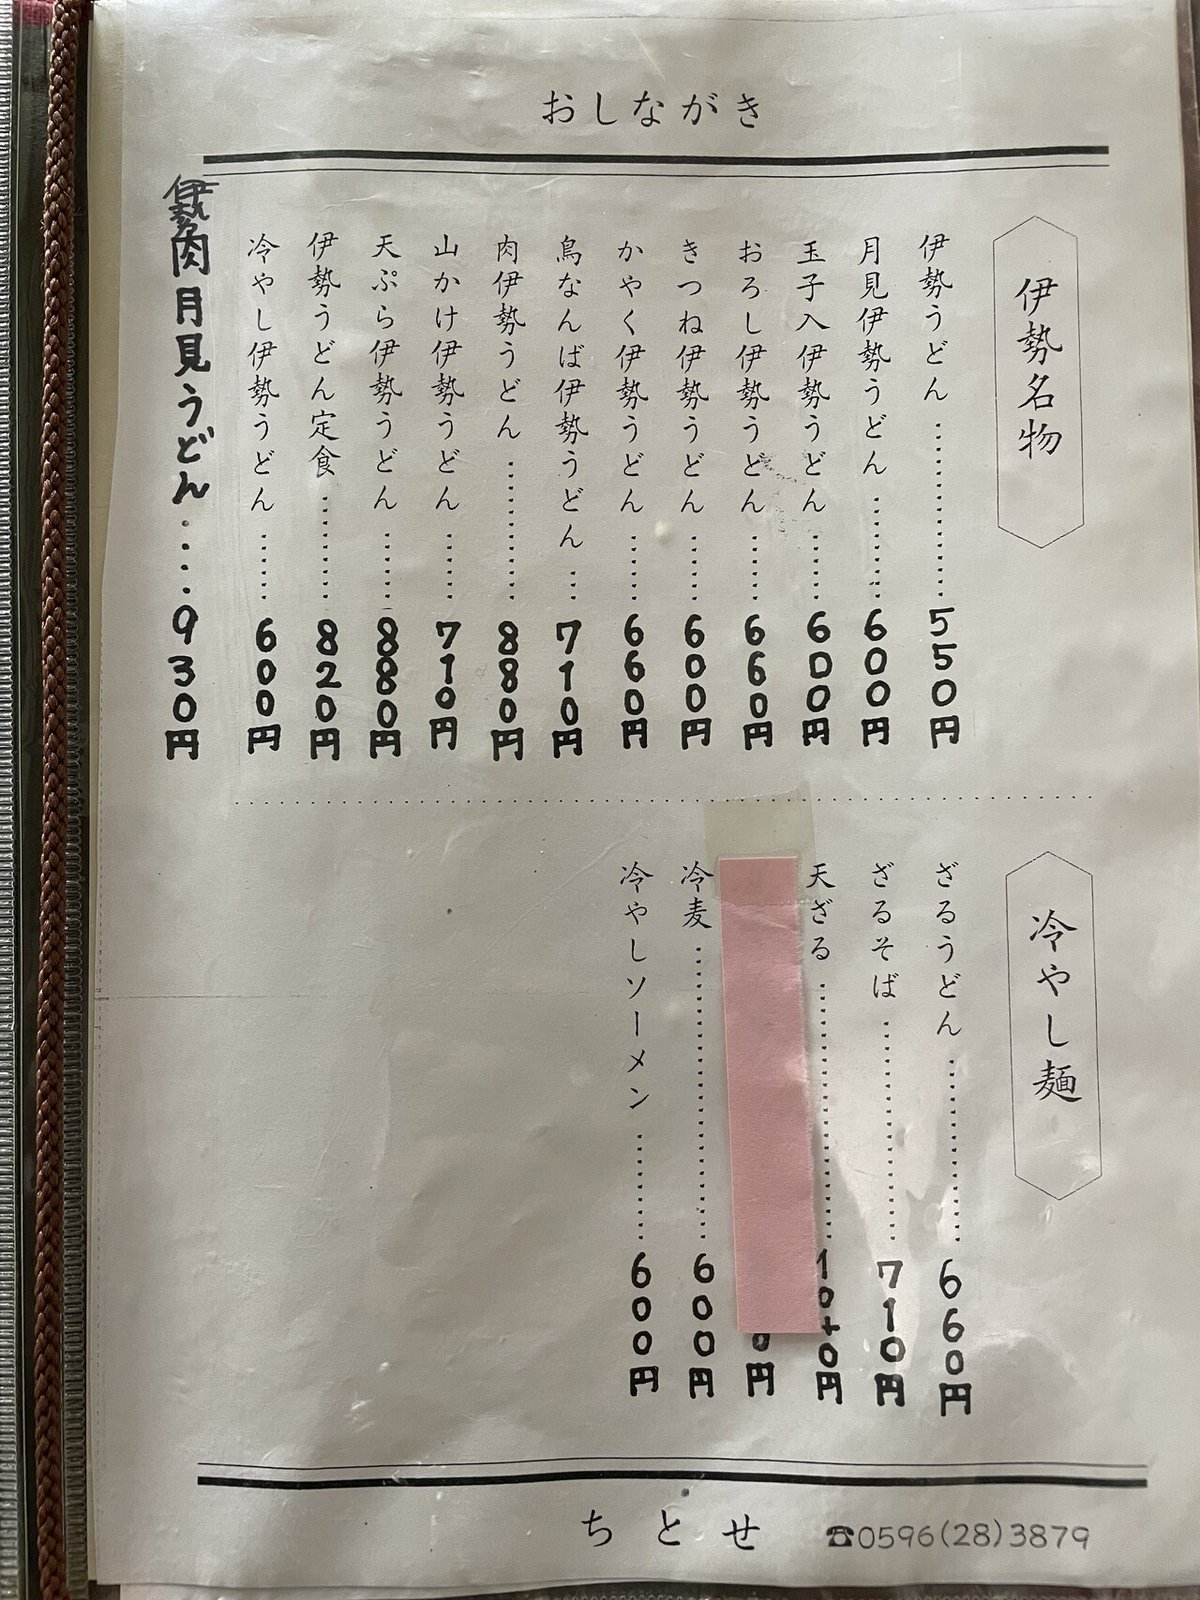 おしながき
伊勢名物
伊勢うどん…………550円
月見伊勢うどん………600円
玉子入伊勢うどん……600円
おろし伊勢うどん……660円
きつね伊勢うどん……600円
かやく伊勢うどん……660円
鳥なんば伊勢うどん…710円
肉伊勢うどん…………880円
山かけ伊勢うどん……710円
天ぷら伊勢うどん……880円
伊勢うどん定食………820円
冷やし伊勢うどん……600円
伊勢肉月見うどん……930円
冷やし麺
ざるうどん……………660円
ざるそば………………710円
天ざる…………………
0円
冷麦……………………600円
冷やしソーメン………600円
ちとせ ☎0596(28)3879